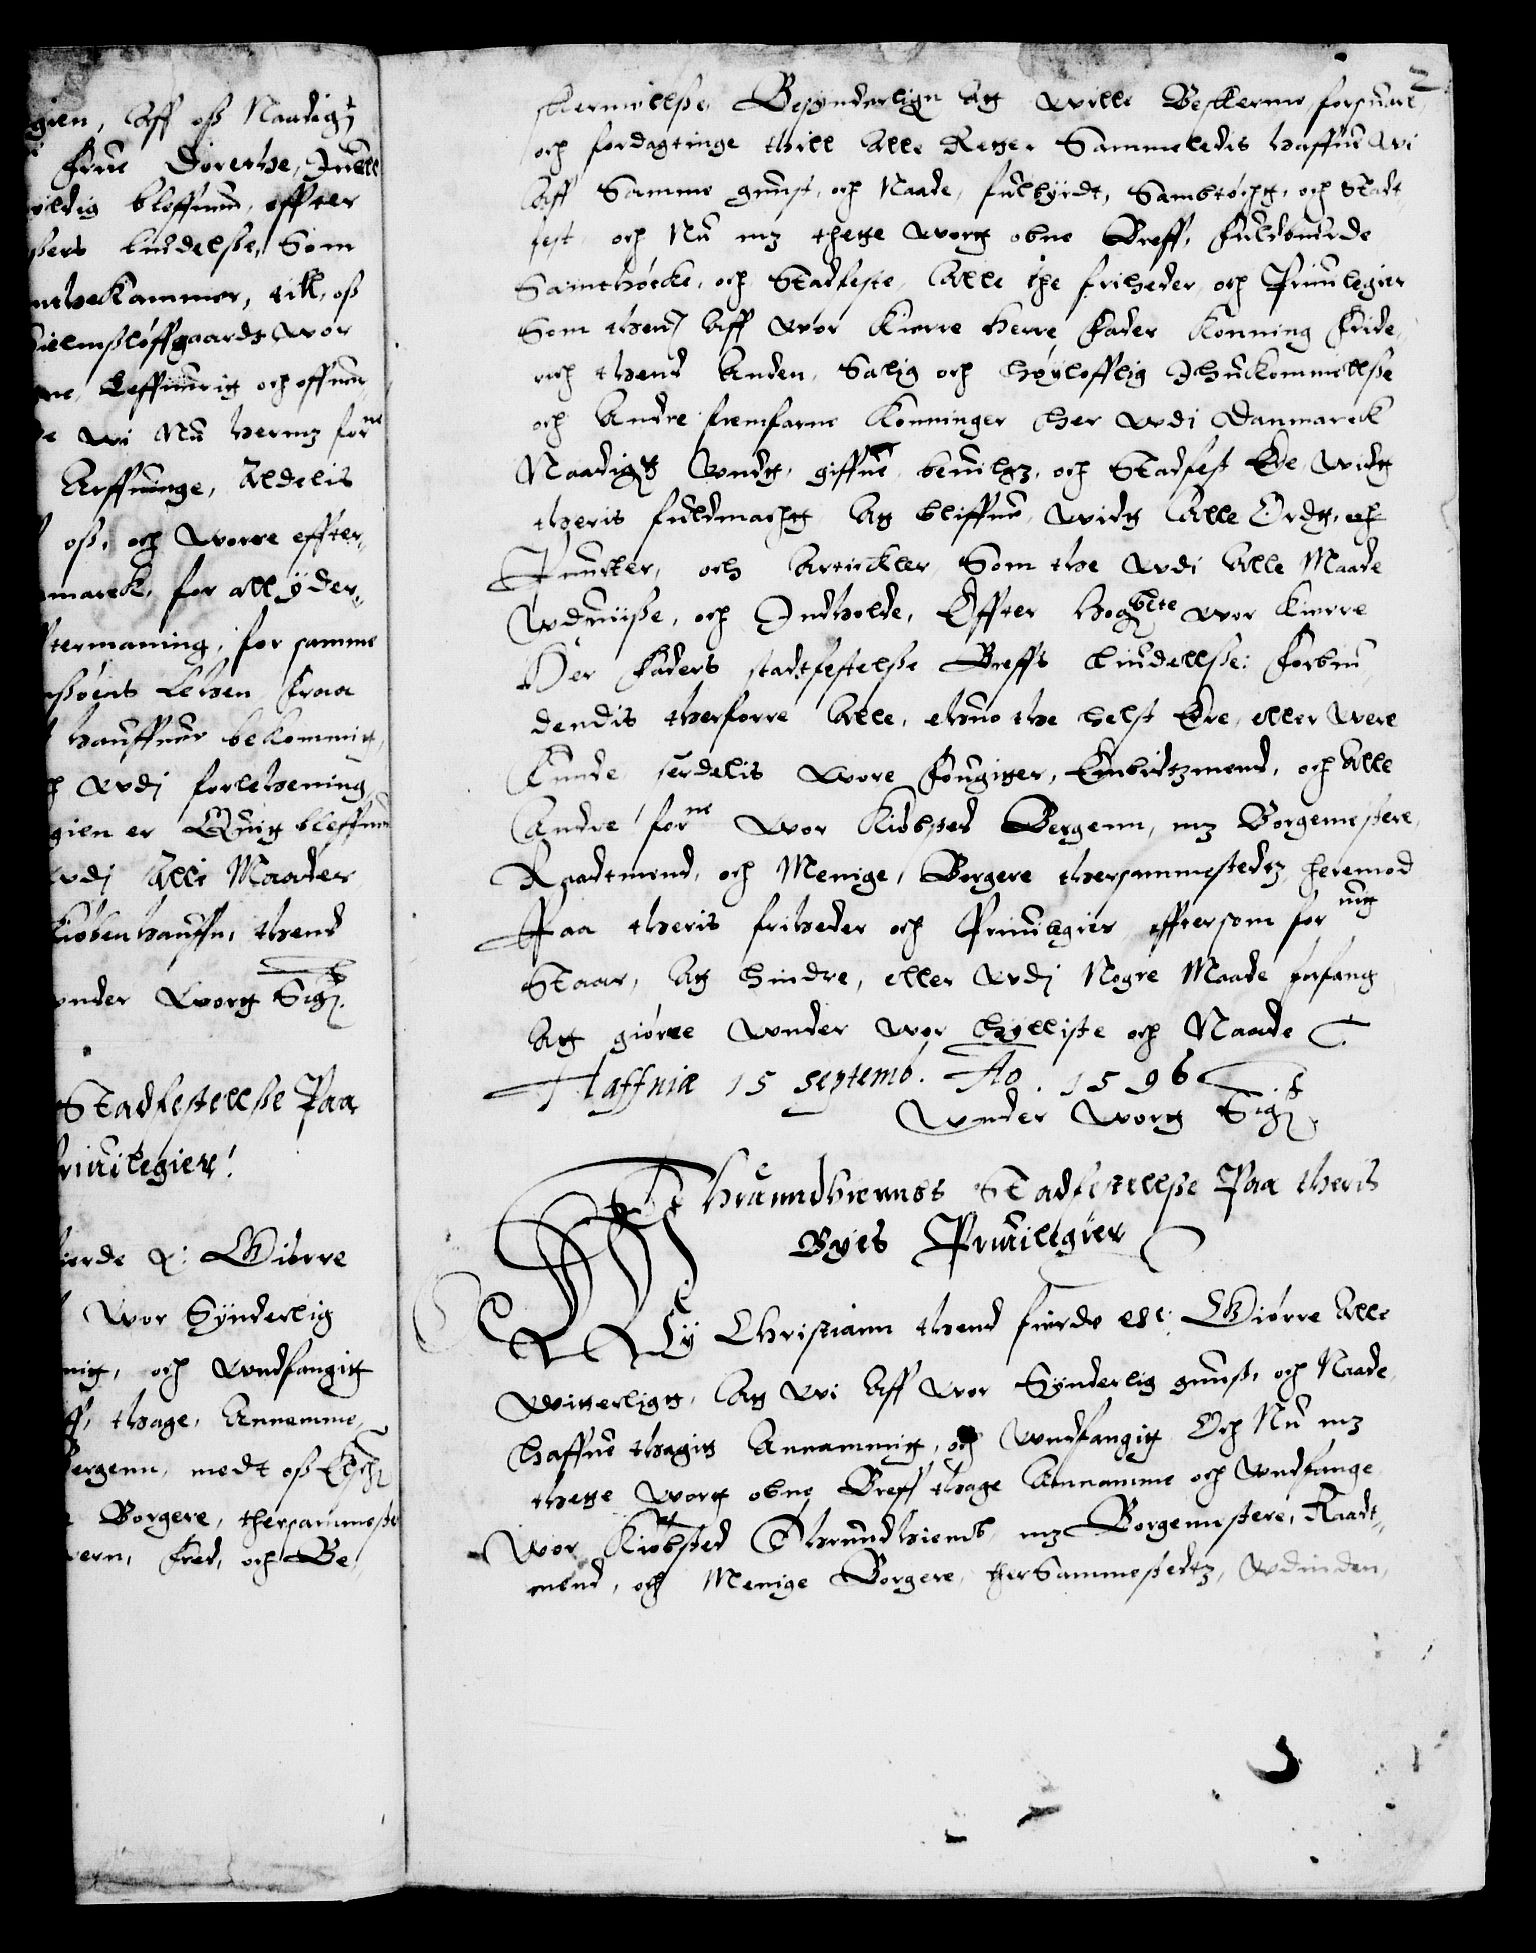 gien, Aff oß Naadigt
Frue Dorethe Juell
yldig bleffuen, effter
ßers liudelße, Som
nthekammer, till, oß
hielmßløffgaardt wor
me, Leffuerig och offuer,
de wi Nu hermz forne
Arffuinge, Aldelis
oß, och worre effter,
marck, for all yder,
termaning, for samme
ßøens Lehen Fraa
hauffuer bekommit,
h wdj forlehening
gien er Quit bleffuen
wdj Alle Maader
Kiøbenhauffn, thend
vnder Wort Sig:
Stadfestellße Paa
riuilegier!
ierde &: Giørre
Wor Synderlig
mit, och wndfangit
ff, thage, Annamme,
Bergenn, medt oß Esch:
Borgere, thersammeste
vern, fred, och Be,
2
skermellße, Besynderligen At wille Beskerme forsuare,
och fordagtinge thill Alle Retter Sammeledis haffue Wi
Aff Samme gunst, och Naade, fulbyrdt, Sambtøcht, och Stadt
fest, och Nu mz thette wort obne Breff, Fuldburde
Samthøcke, och Stadfeste, Alle the friheder och Priuilegier
Som thend Aff Wor Kierre Herre Fader Konning Fride,
rich thend Anden, Salig och høylofflig Ihukommellße
och Andre fremfarne Konninger her wdi Danmarck
Naadigst Wndt, giffuet beuilgz, och Stadfest Ere, Widt
theris fuldmacht At bliffue, widt Alle Ordt, och
Puncter, och Artickler Som the wdi Alle Maade
Wduiiße, och Indholde, Effter Høgbete wor Kierre
Her Faders stadtfestelße Breffs Liudellße: Forbiu,
dendis therforre Alle, ehuo the helst Ere, eller Were
Kunde serdelis Wore Fougitter, Embidtzmend, och Alle
Andre forne Wor Kiøbsted Bergenn, mz Borgemestere,
Raadtmend, och Menige, Borgere thersammestedtz, heremod
Paa theris friheder och Priuilegier efftersom for uit
Staar, At hindre, eller Wdj Nogre Maade forfang
At giørre Wnder Wor hylliste och Naade
Haffniæ 15 septemb. Ao. 1596
Wnder Wort Sig:
Thruundhiemss Stadfestellße Paa theris
Byes Priuilegier
Wy Christiann thend fierde etc: Giørre Alle
Witterligt, At Wi Aff Wor Synderlig gunst, och Naade,
haffue thagit Annammit, och Wndfangit Och Nu mz
thette wort obne Breff thage Annamme och Wndfange
Wor Kiøbsted Thrundhiemb mz Borgemestere, Raadt,
mend, och Menige Borgere, ther Sammestedtz, Wdinden,